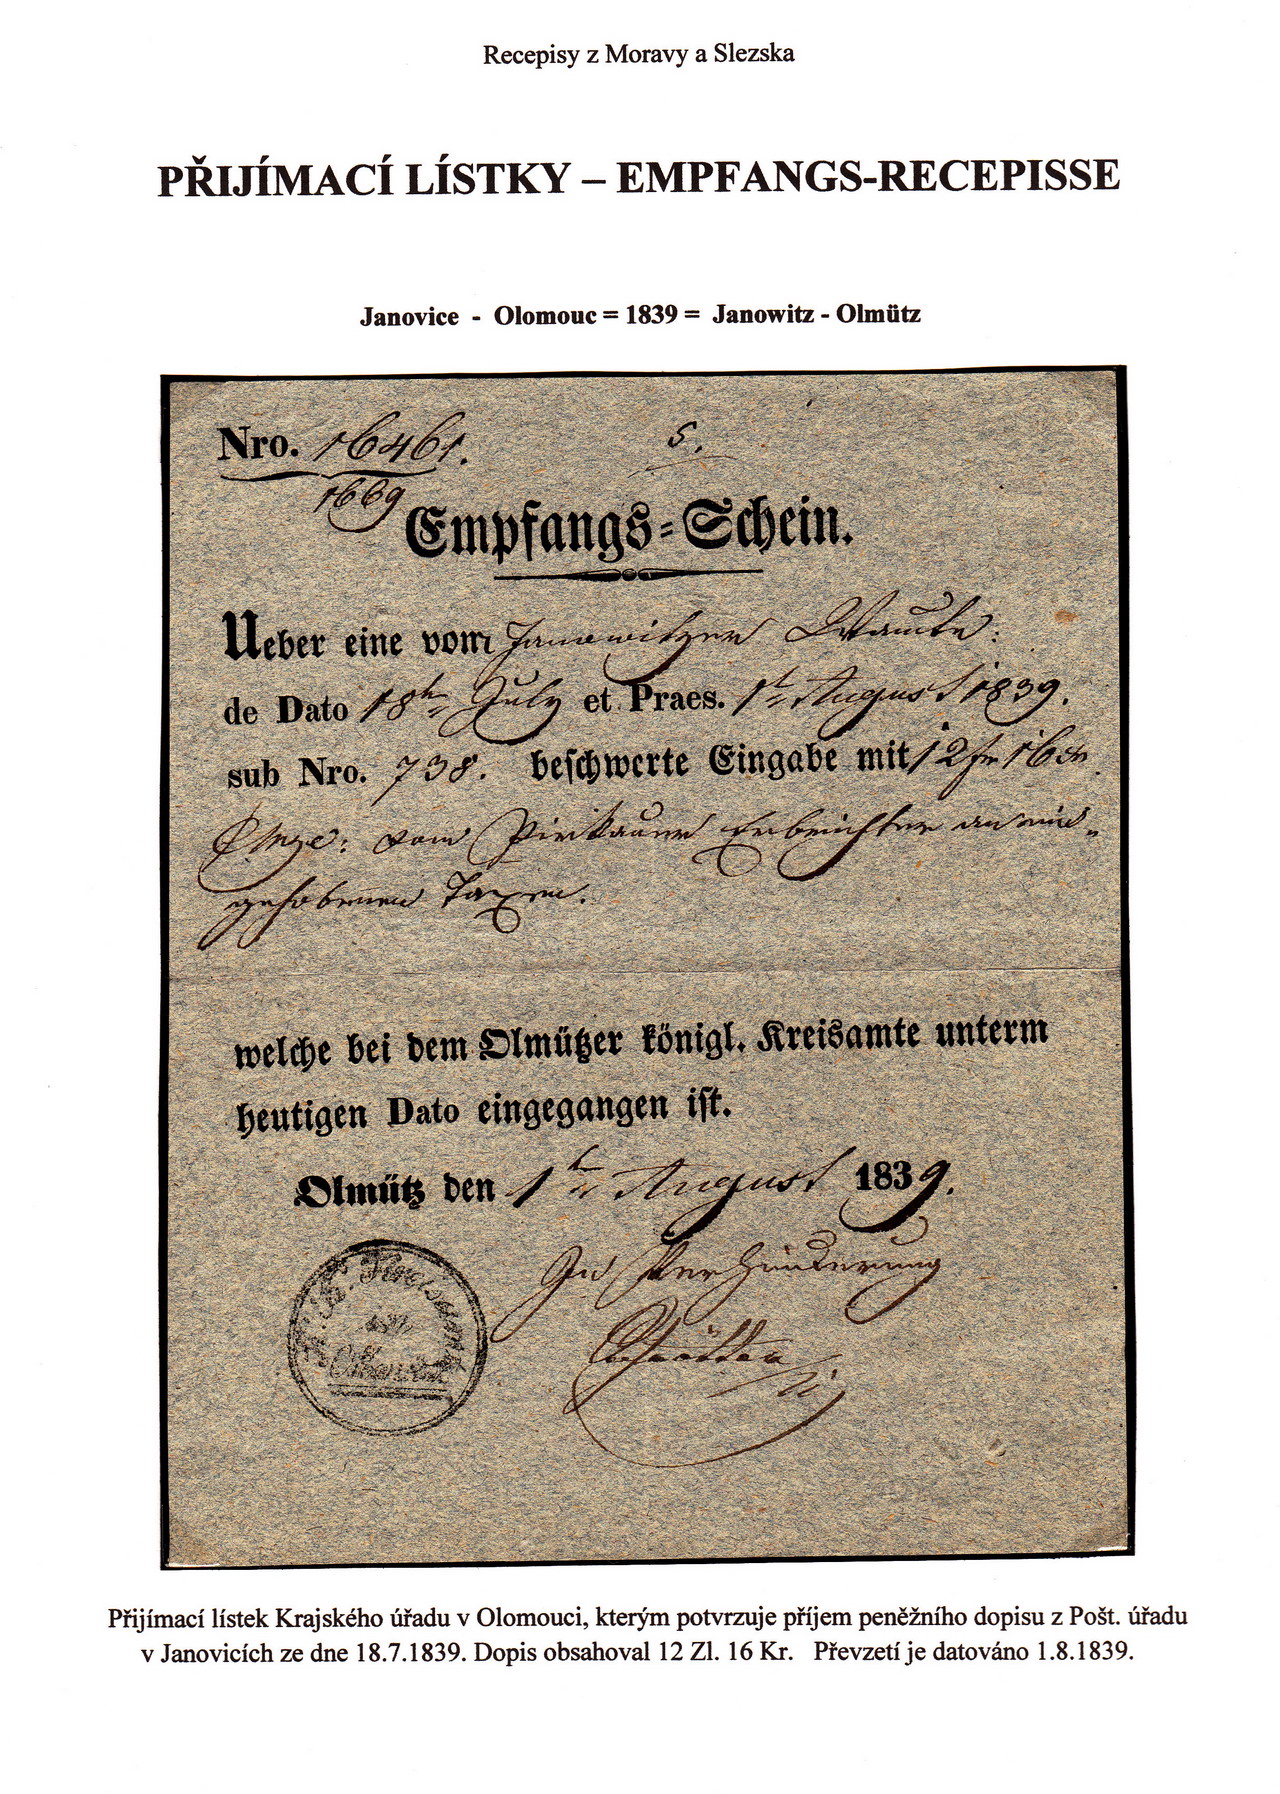 Recepisy z Moravy a Slezska
PŘIJÍMACÍ LÍSTKY – EMPFANGS-RECEPISSE
Janovice - Olomouc = 1839 = Janowitz - Olmütz
Nro. 16461.
5.
1669
Empfangs-Schein.
Ueber eine vom Janowitzer
de Dato 18th July et Praes. 1th August 1839.
sub Nro. 738. beschwerte Eingabe mit 12 fr 16
vom Erbrichter an ein-
gehobenen Taxen.
welche bei dem Olmützer königl. Kreisamte unterm
heutigen Dato eingegangen ist.
Olmütz den 1th August 1839.
In Verhinderung
K. K. Kreisamt
Olmütz
Přijímací lístek Krajského úřadu v Olomouci, kterým potvrzuje příjem peněžního dopisu z Pošt. úřadu
v Janovicích ze dne 18.7.1839. Dopis obsahoval 12 Zl. 16 Kr. Převzetí je datováno 1.8.1839.